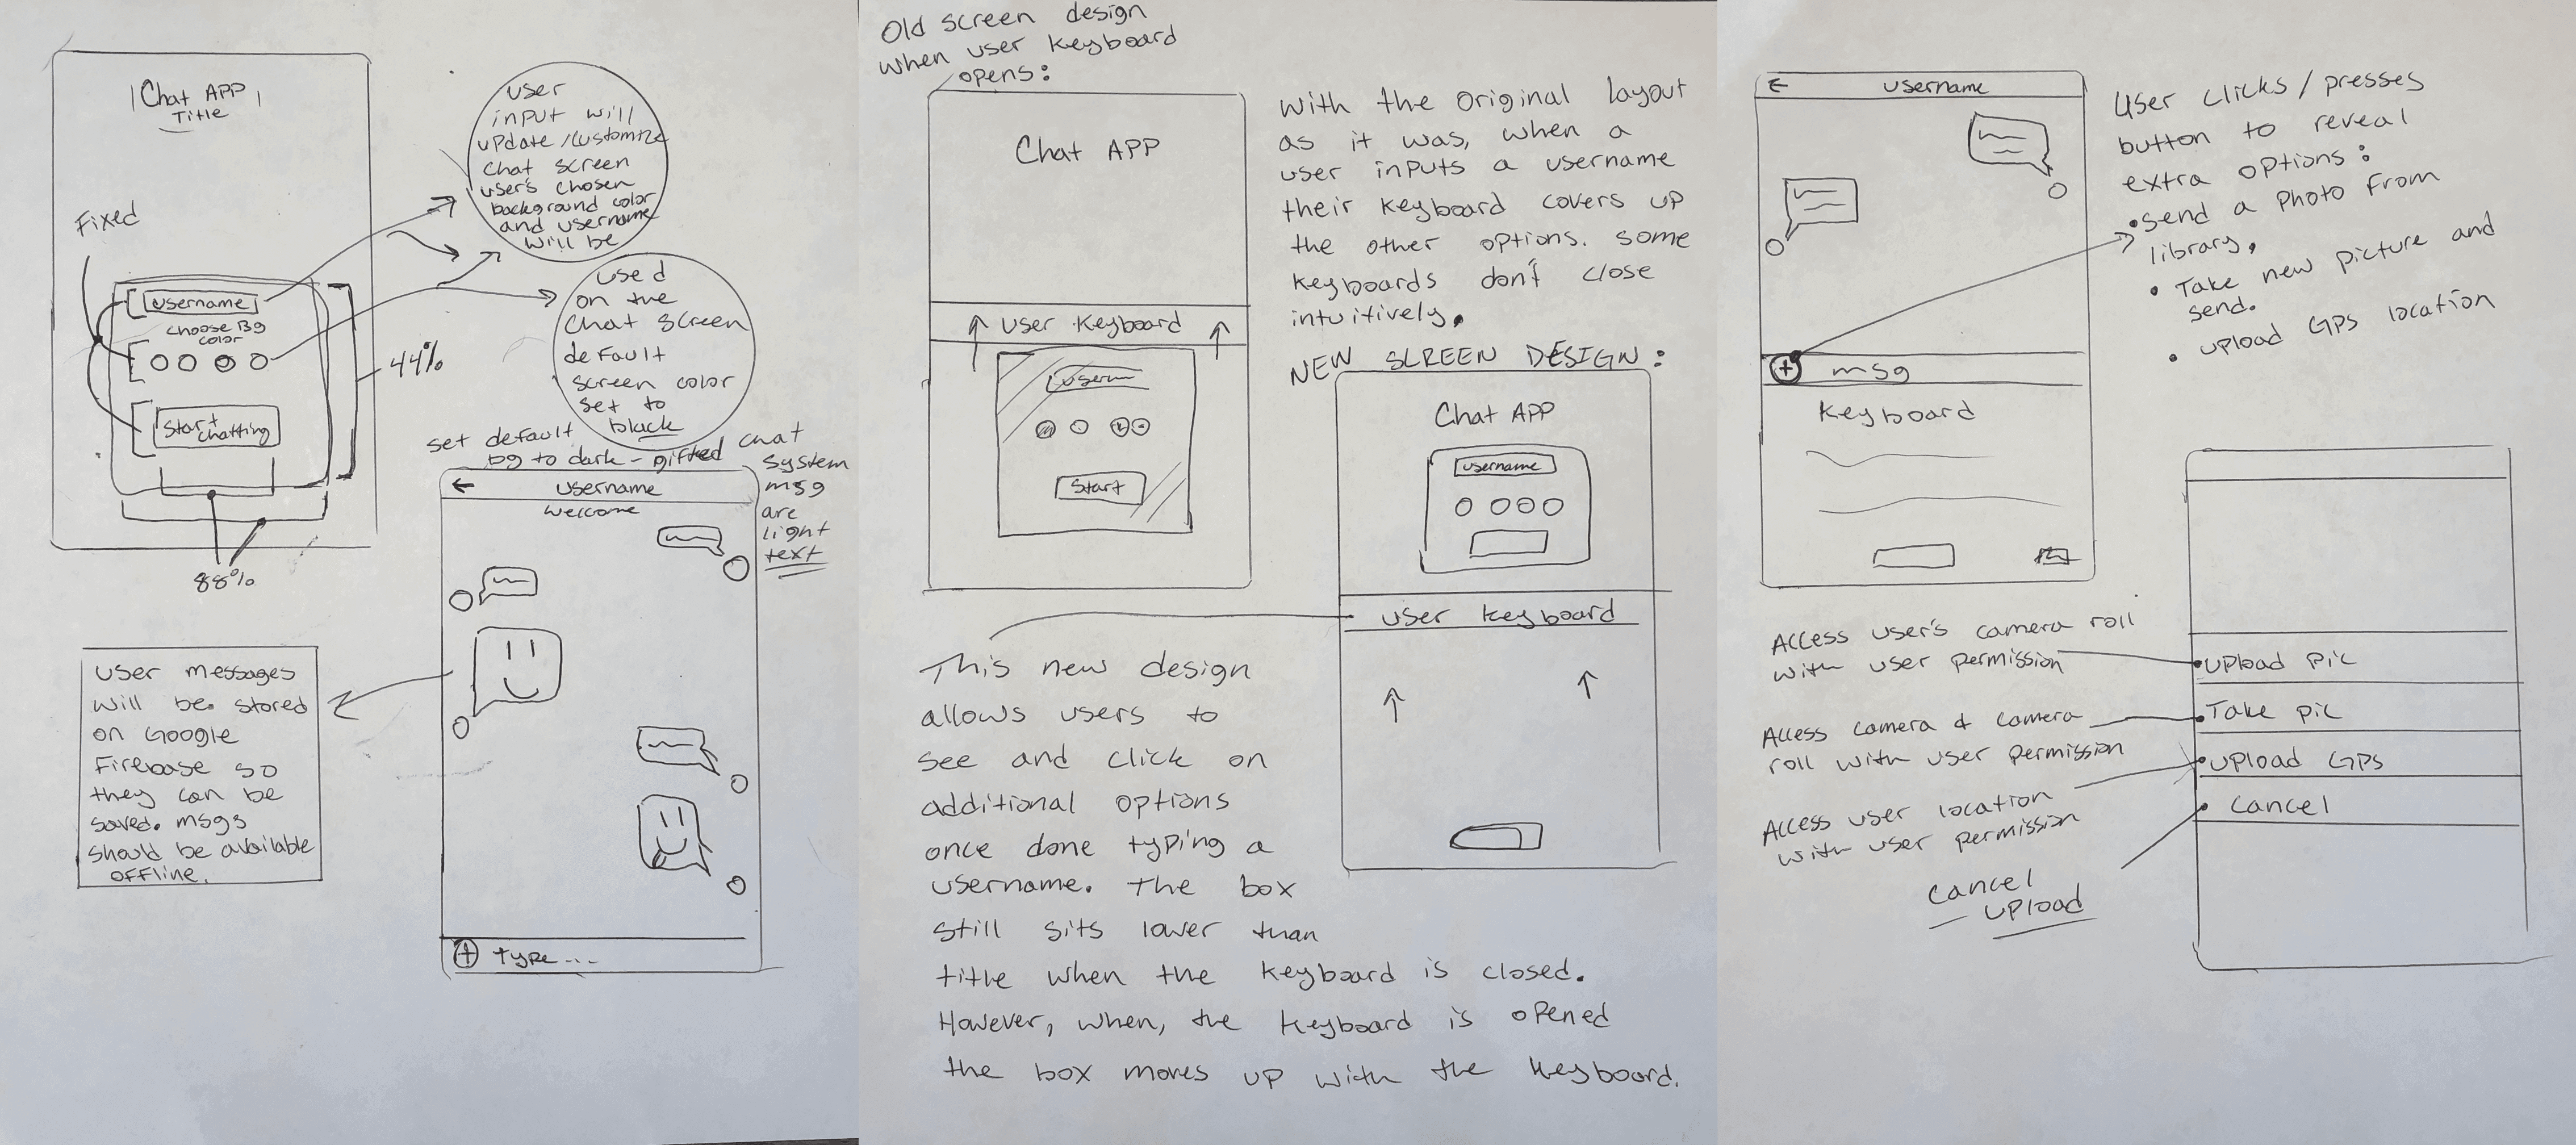 Chat APP
Title
Fixed
username
choose BG
color
Start
chatting
44%
88%
user
input will
update/customize
chat screen
user's chosen
background color
and username
will be
used
on the
chat screen
default
screen color
set to
black
set default
bg to dark - gifted chat
system
msg
are
light
text
←
username
welcome
+ type...
user messages
will be stored
on Google
Firebase so
they can be
saved. msgs
should be available
offline.
Old screen design
when user keyboard
opens:
Chat APP
↑ user keyboard ↑
usern
Start
with the original layout
as it was, when a
user inputs a username
their keyboard covers up
the other options. some
keyboards don't close
intuitively.
NEW SCREEN DESIGN:
Chat APP
username
user keyboard
This new design
allows users to
see and click on
additional options
once done typing a
username. the box
still sits lower than
title when the keyboard is closed.
However, when, the keyboard is opened
the box moves up with the keyboard.
← username
+ msg
keyboard
User clicks/presses
button to reveal
extra options:
• send a photo from
library.
• Take new picture and
send.
• upload GPS location
Access user's camera roll
with user permission
Access camera & camera
roll with user permission
Access user location
with user permission
cancel
upload
• upload pic
• Take pic
• upload GPS
• cancel